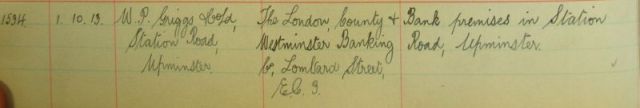 1594. 1.10.13. W.P. Griggs & Co Ld, The London, County & Bank premises in Station
Station Road, Westminster Banking Road, Upminster.
Upminster. Co, Lombard Street,
E.C. 3.